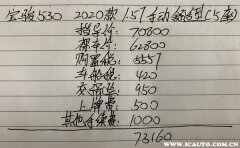 宝骏530 2020款 1.5T 手动 舒适型(5座)
指导价: 70800
裸车价: 62800
购置税: 5557
车船税: 420
交强险: 950
上牌费: 500
其他手续费: 1000
73160
WWW.ICAUTO.COM.CN